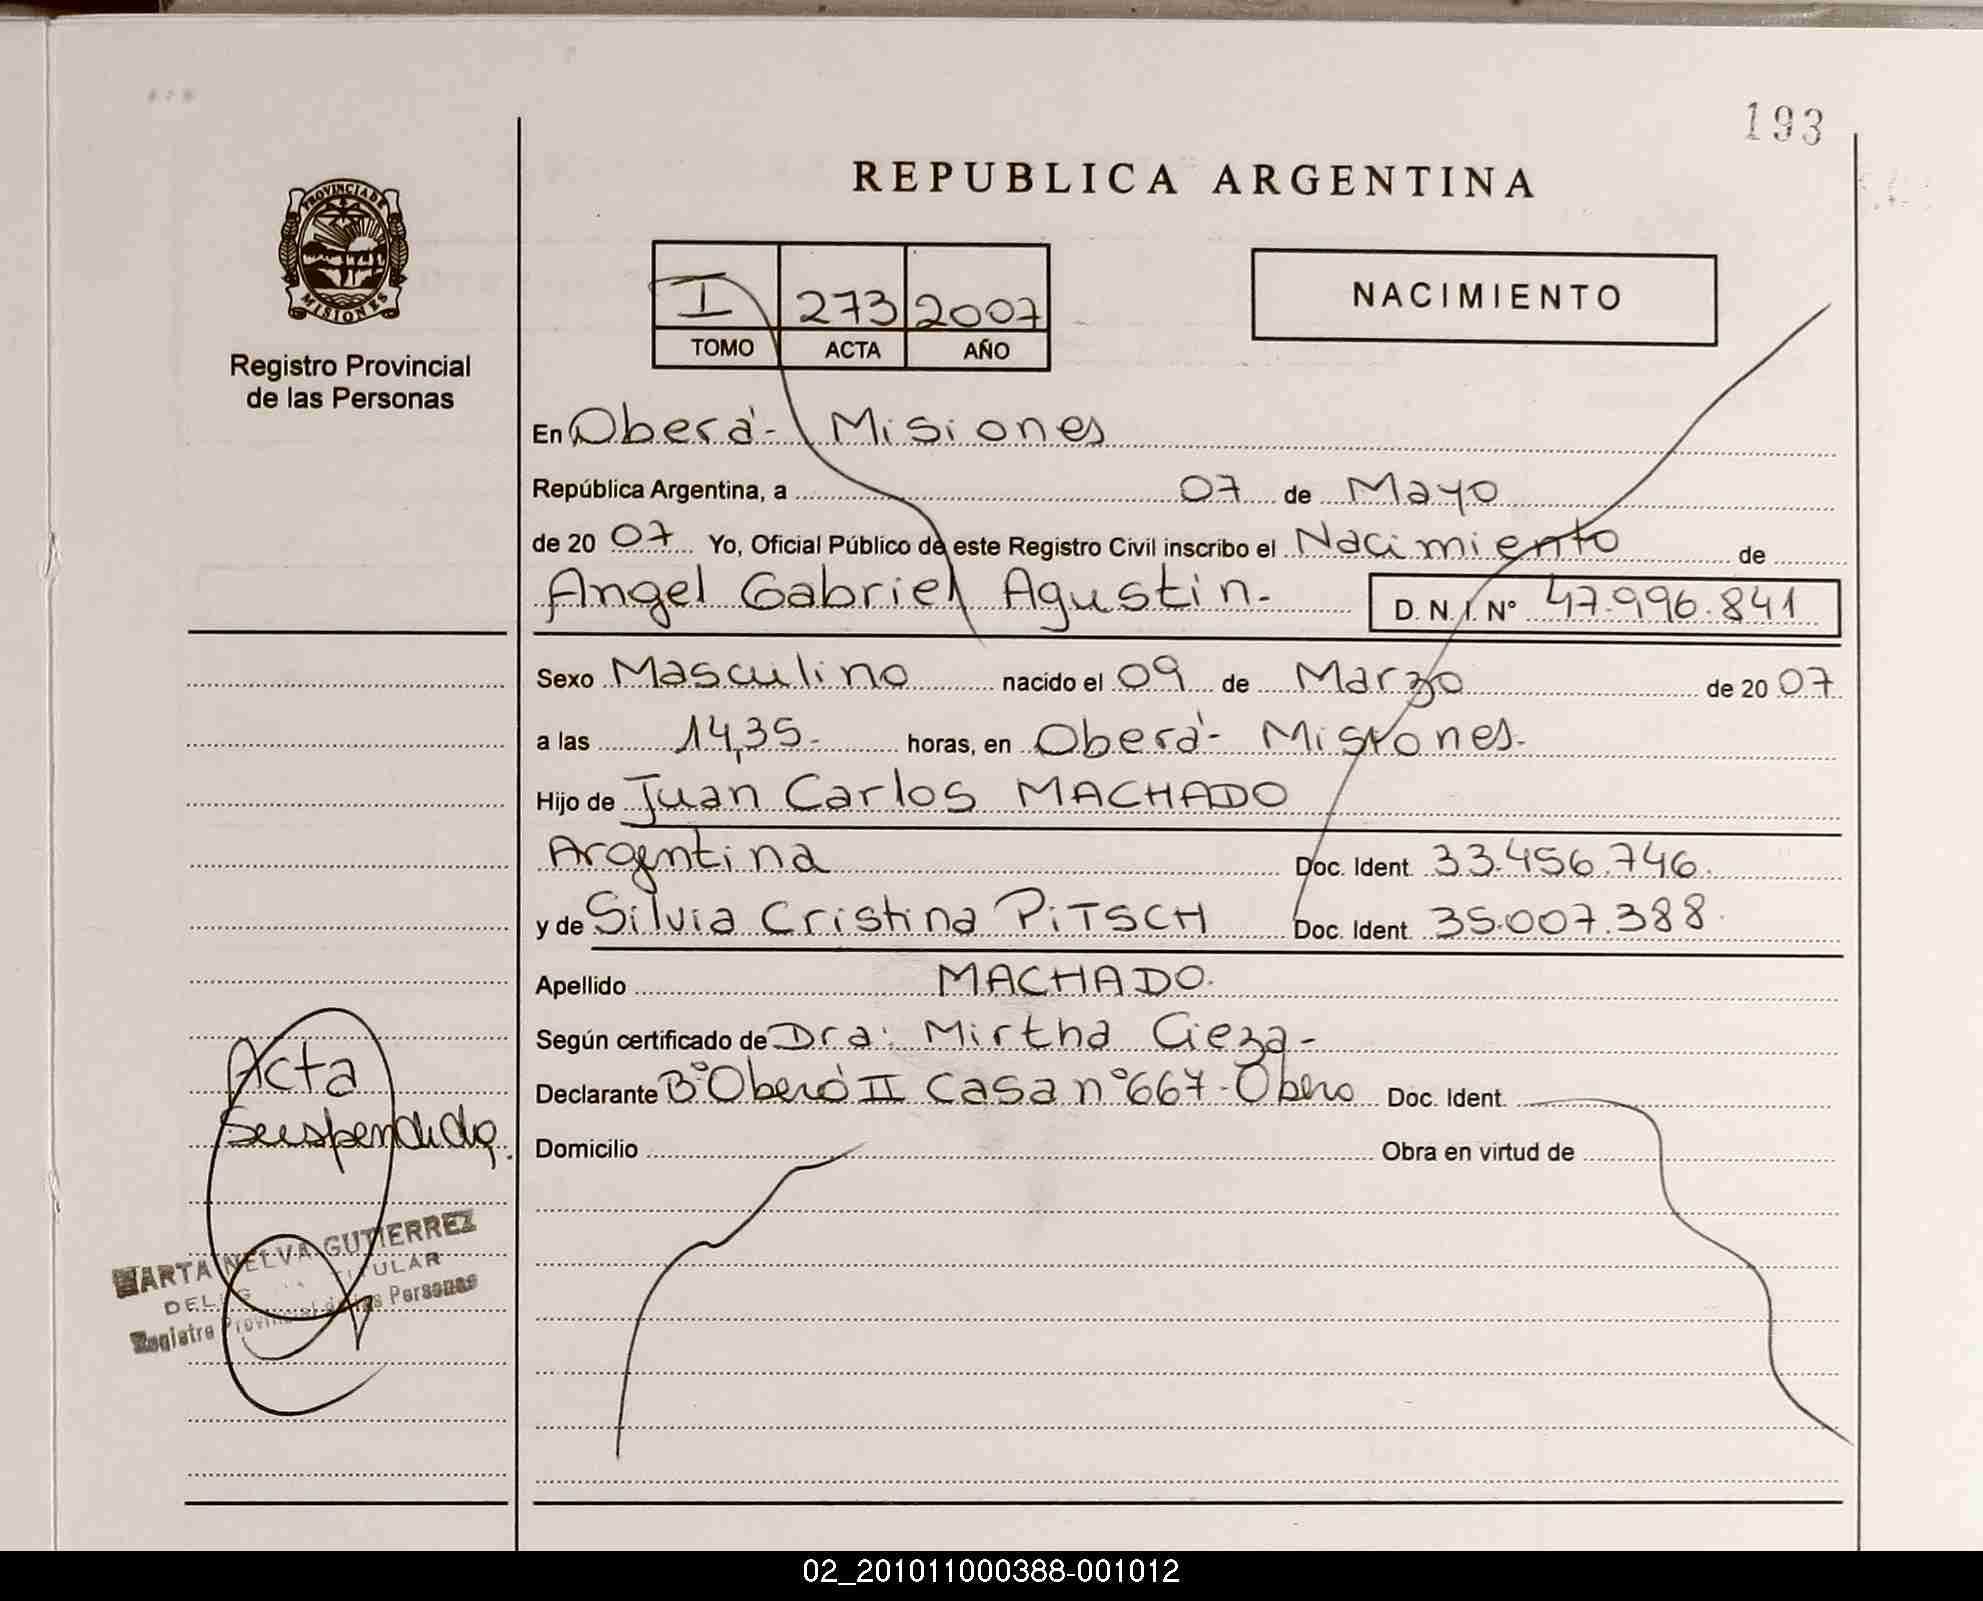 193
PROVINCIA DE
MISIONES
Registro Provincial
de las Personas
REPUBLICA ARGENTINA
I 273 2007
TOMO ACTA AÑO
NACIMIENTO
En Oberá - Misiones
República Argentina, a 07 de Mayo
de 20 07 Yo, Oficial Público de este Registro Civil inscribo el Nacimiento de
Angel Gabriel Agustin.- D. N. I. N° 47.996.841
Sexo Masculino nacido el 09 de Marzo de 20 07
a las 14,35.- horas, en Oberá - Misiones.-
Hijo de Juan Carlos MACHADO
Argentina Doc. Ident. 33.456.746.
y de Silvia Cristina PiTSCH Doc. Ident. 35.007.388.
Apellido MACHADO.
Según certificado de Dra: Mirtha Cieza -
Declarante B° Oberá II Casa n° 667 - Obera Doc. Ident.
Domicilio Obra en virtud de
Acta
Suspendida.
MARTA NELVA GUTIERREZ
TITULAR
Registro Provincial de las Personas
02_201011000388-001012